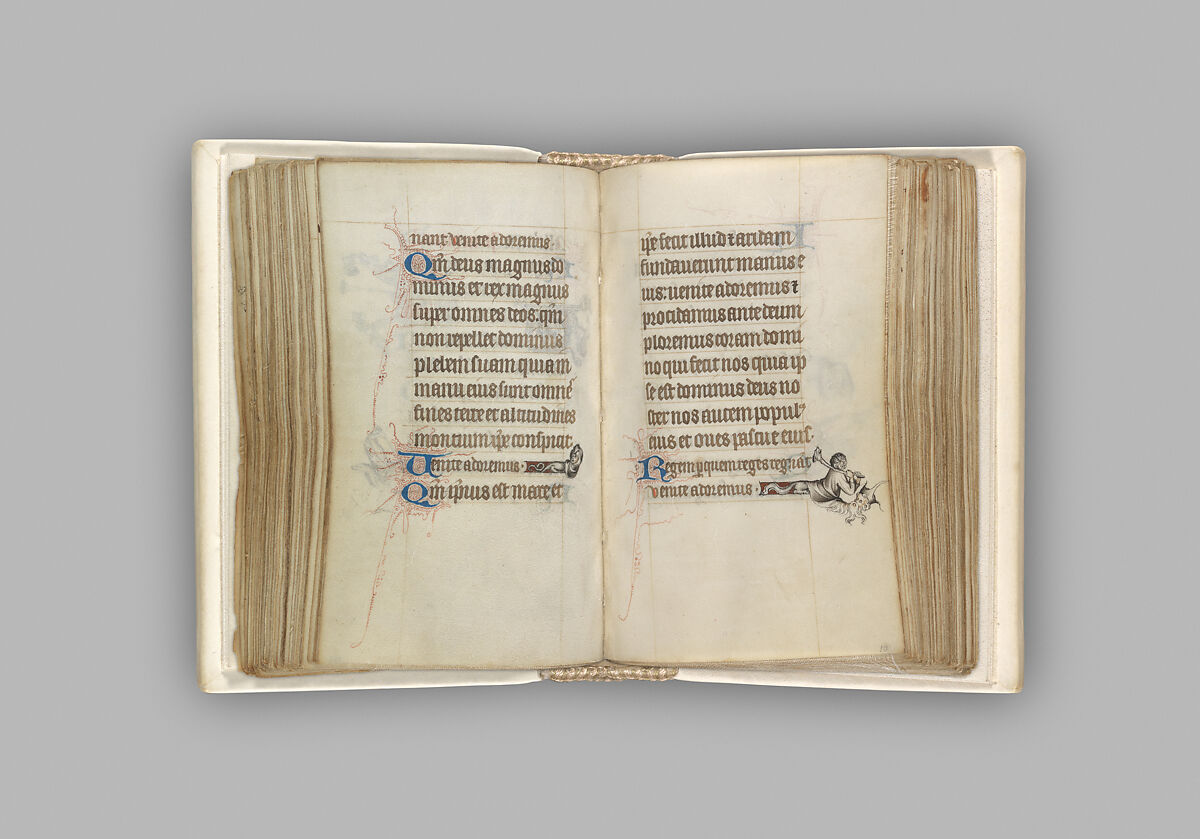 nant venite adoremus.
Qm̄ deus magnus do
minus et rex magnus
super omnes deos: qm̄
non repellet dominus
plebem suam quia in
manu eius sunt omnēs
fines terre et altitudines
montium ip̄e conspicit.
Venite adoremus.
Qm̄ ip̄ius est mare et
ip̄e fecit illud ⁊ aridam
fundaverunt manus e
ius: venite adoremus ⁊
procidamus ante deum
ploremus coram domi
no qui fecit nos quia ip
se est dominus deus no
ster nos autem popul᾿
eius et oves pascue eius.
Regem p̱ quem reges regnāt
venite adoremus.
18